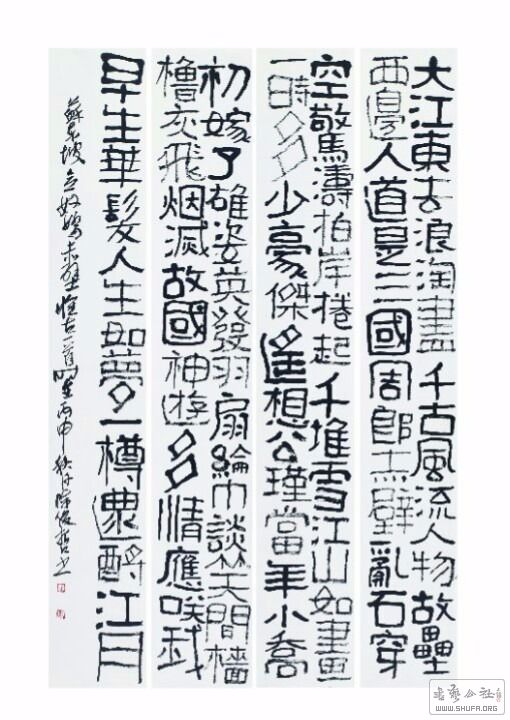 大江東去浪淘盡千古風流人物故壘
西邊人道是三國周郎赤壁亂石穿
空驚濤拍岸捲起千堆雪江山如畫
一時多少豪傑遙想公瑾當年小喬
初嫁了雄姿英發羽扇綸巾談笑間檣
櫓灰飛烟滅故國神遊多情應笑我
早生華髮人生如夢一樽還酹江月
蘇東坡念奴嬌赤壁懷古一首時在丙申秋陳俊哲書
書藝公社
WWW.SHUFA.ORG